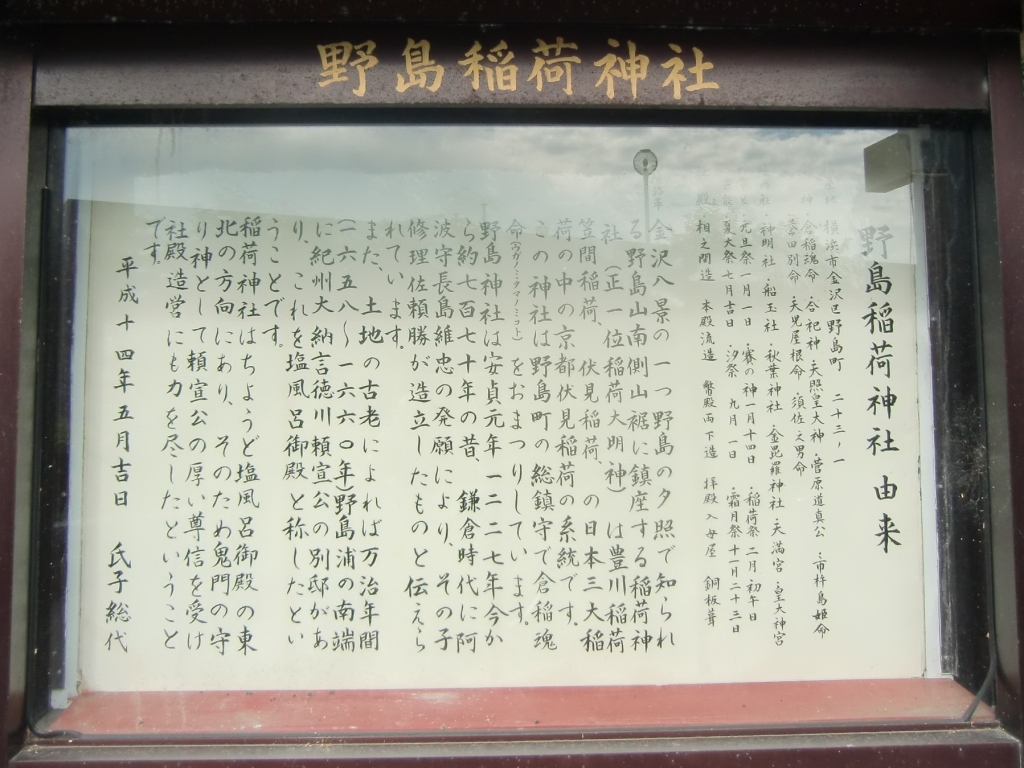 野島稲荷神社
野島稲荷神社由来
横浜市金沢区野島町 二十三ノ一
倉稲魂命・合祀神・天照皇大神・菅原道真公・市杵島姫命
誉田別命・天児屋根命・須佐之男命
神明社・船玉社・秋葉神社・金毘羅神社・天満宮・皇大神宮
元旦祭一月一日・賽の神一月十四日・稲荷祭二月初午日
夏大祭七月吉日・汐祭 九月一日・霜月祭十一月二十三日
相之間造 本殿流造 幣殿両下造 拝殿入母屋 銅板葺
金沢八景の一つ野島の夕照で知られ
る野島山南側山裾に鎮座する稲荷神
社(正一位稲荷大明神)は豊川稲荷
笠間稲荷、伏見稲荷、の日本三大稲
荷の中の京都伏見稲荷の系統です。
この神社は野島町の総鎮守で倉稲魂
命(ウガノミタマノミコト)をおまつりしています。
野島神社は安貞元年一二二七年今か
ら約七百七十年の昔、鎌倉時代に阿
波守長島維忠の発願により、その子
修理佐頼勝が造立したものと伝えら
れています。
また、土地の古老によれば万治年間
(一六五八〜一六六〇年)野島浦の南端
に紀州大納言徳川頼宣公の別邸があ
り、これを塩風呂御殿と称したとい
うことです。
稲荷神社はちょうど塩風呂御殿の東
北の方向にあり、そのため鬼門の守
り神として頼宣公の厚い尊信を受け
社殿造営にも力を尽したということ
です。
平成十四年五月吉日 氏子総代